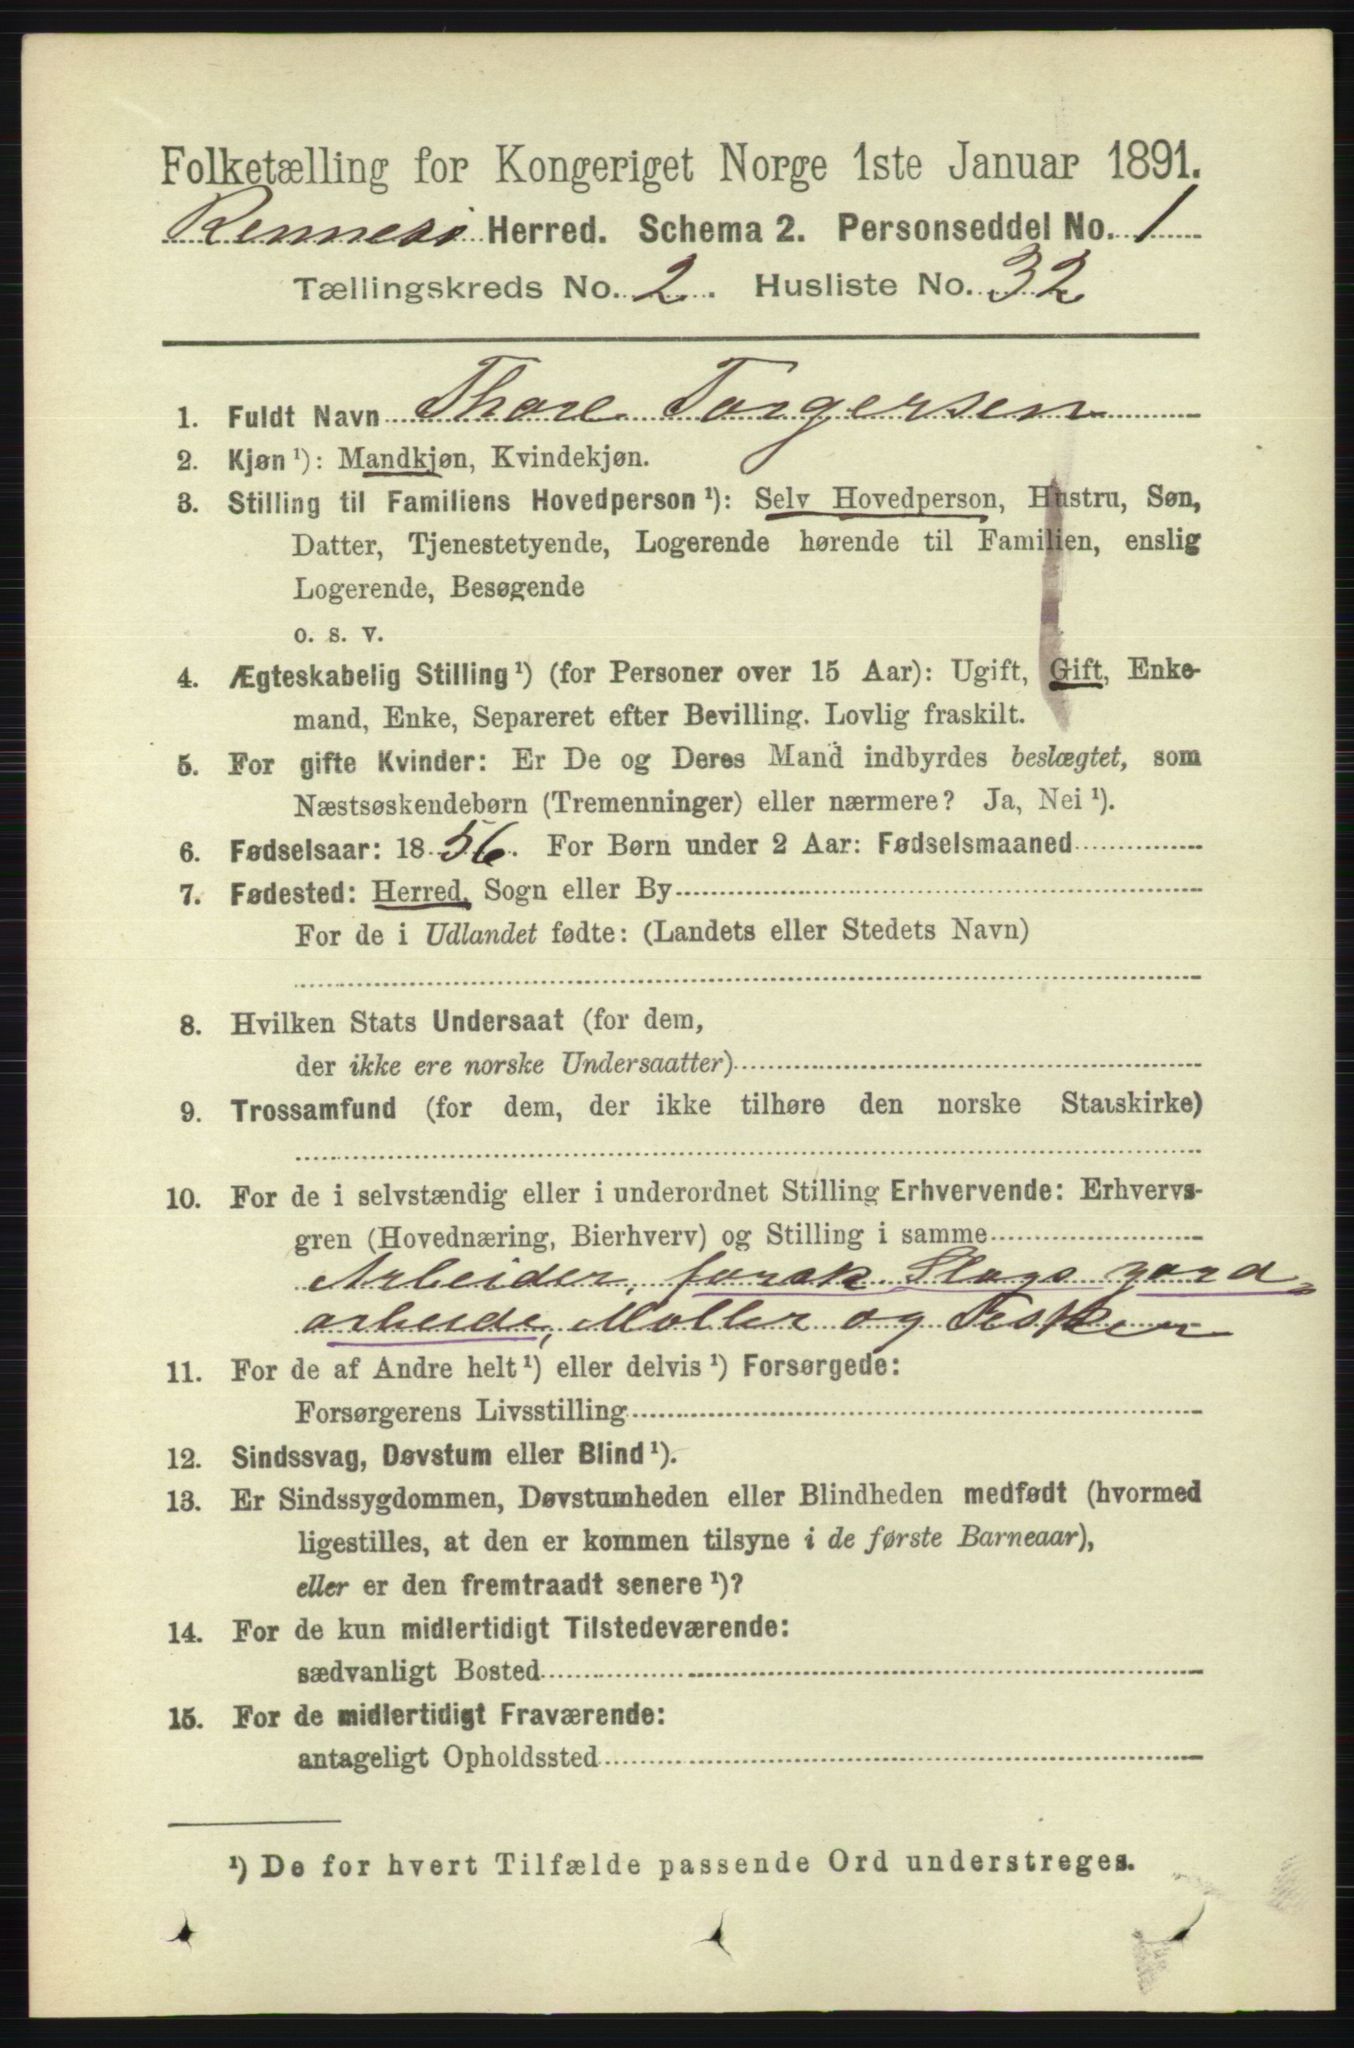 Folketælling for Kongeriget Norge 1ste Januar 1891.
Rennesø Herred. Schema 2. Personseddel No. 1
Tællingskreds No. 2. Husliste No. 32
1. Fuldt Navn Thore Torgersen
2. Kjøn ¹): Mandkjøn, Kvindekjøn.
3. Stilling til Familiens Hovedperson ¹): Selv Hovedperson, Hustru, Søn,
Datter, Tjenestetyende, Logerende hørende til Familien, enslig
Logerende, Besøgende
o. s. v.
4. Ægteskabelig Stilling ¹) (for Personer over 15 Aar): Ugift, Gift, Enke-
mand, Enke, Separeret efter Bevilling. Lovlig fraskilt.
5. For gifte Kvinder: Er De og Deres Mand indbyrdes beslægtet, som
Næstsøskendebørn (Tremenninger) eller nærmere? Ja, Nei ¹).
6. Fødselsaar: 1856. For Børn under 2 Aar: Fødselsmaaned
7. Fødested: Herred, Sogn eller By
For de i Udlandet fødte: (Landets eller Stedets Navn)
8. Hvilken Stats Undersaat (for dem,
der ikke ere norske Undersaatter)
9. Trossamfund (for dem, der ikke tilhøre den norske Statskirke)
10. For de i selvstændig eller i underordnet Stilling Erhvervende: Erhvervs-
gren (Hovednæring, Bierhverv) og Stilling i samme
Arbeider, forsk. Slags gard-
arbeide, Møller og Fisker
11. For de af Andre helt ¹) eller delvis ¹) Forsørgede:
Forsørgerens Livsstilling
12. Sindssvag, Døvstum eller Blind ¹).
13. Er Sindssygdommen, Døvstumheden eller Blindheden medfødt (hvormed
ligestilles, at den er kommen tilsyne i de første Barneaar),
eller er den fremtraadt senere ¹)?
14. For de kun midlertidigt Tilstedeværende:
sædvanligt Bosted
15. For de midlertidigt Fraværende:
antageligt Opholdssted
¹) De for hvert Tilfælde passende Ord understreges.